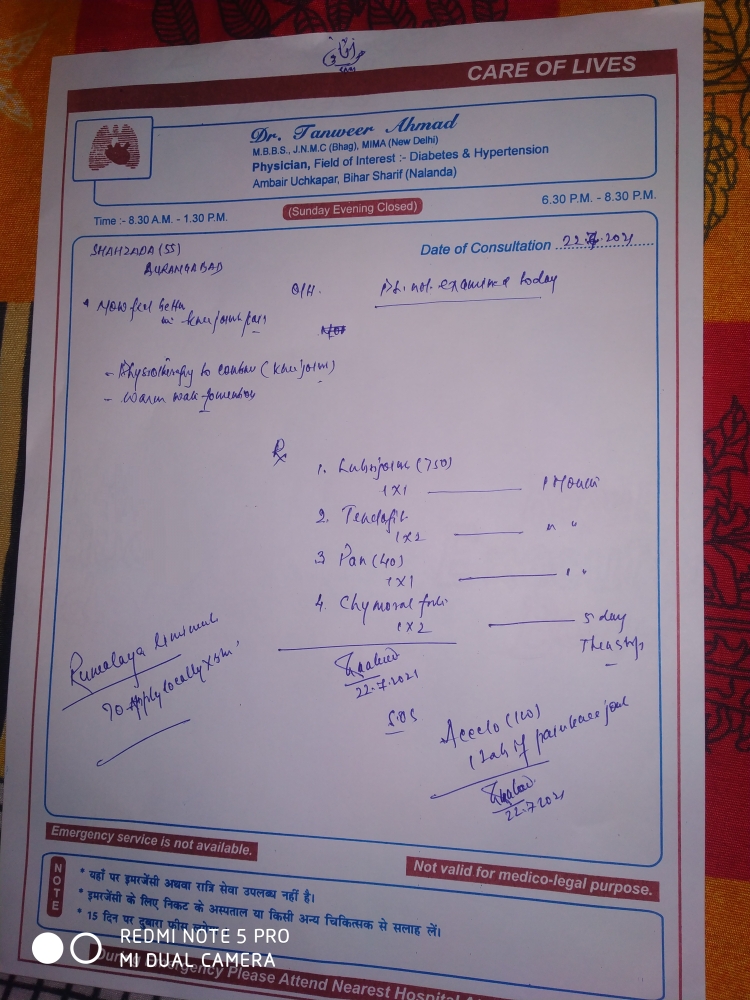 CARE OF LIVES
Dr. Tanweer Ahmad
M.B.B.S., J.N.M.C (Bhag), MIMA (New Delhi)
Physician, Field of Interest :- Diabetes & Hypertension
Ambair Uchkapar, Bihar Sharif (Nalanda)
Time :- 8.30 A.M. - 1.30 P.M.
(Sunday Evening Closed)
6.30 P.M. - 8.30 P.M.
SHAHZADA (55)
AURANGABAD
Date of Consultation 22.7.2021
O/H. Pt. not examined today
* Now feel better
in knee joint pain
- Physiotherapy to continue (knee joint)
- Warm water fomentation
Rx
1. Lubrijoint (750)
1 X 1 1 Month
2. Tendofit
1 X 2 " "
3 Pan (40)
1 X 1 " "
4. Chymoral forte
1 X 2 5 day
Then stop
22.7.2021
Rumalaya liniment
To Apply locally X
SOS
Aceclo (100)
1 tab if pain knee joint
22.7.2021
Emergency service is not available.
Not valid for medico-legal purpose.
NOTE
* यहाँ पर इमरजेंसी अथवा रात्रि सेवा उपलब्ध नहीं है।
* इमरजेंसी के लिए निकट के अस्पताल या किसी अन्य चिकित्सक से सलाह लें।
* 15 दिन पर दुबारा फीस
During Emergency Please Attend Nearest Hospital
REDMI NOTE 5 PRO
MI DUAL CAMERA